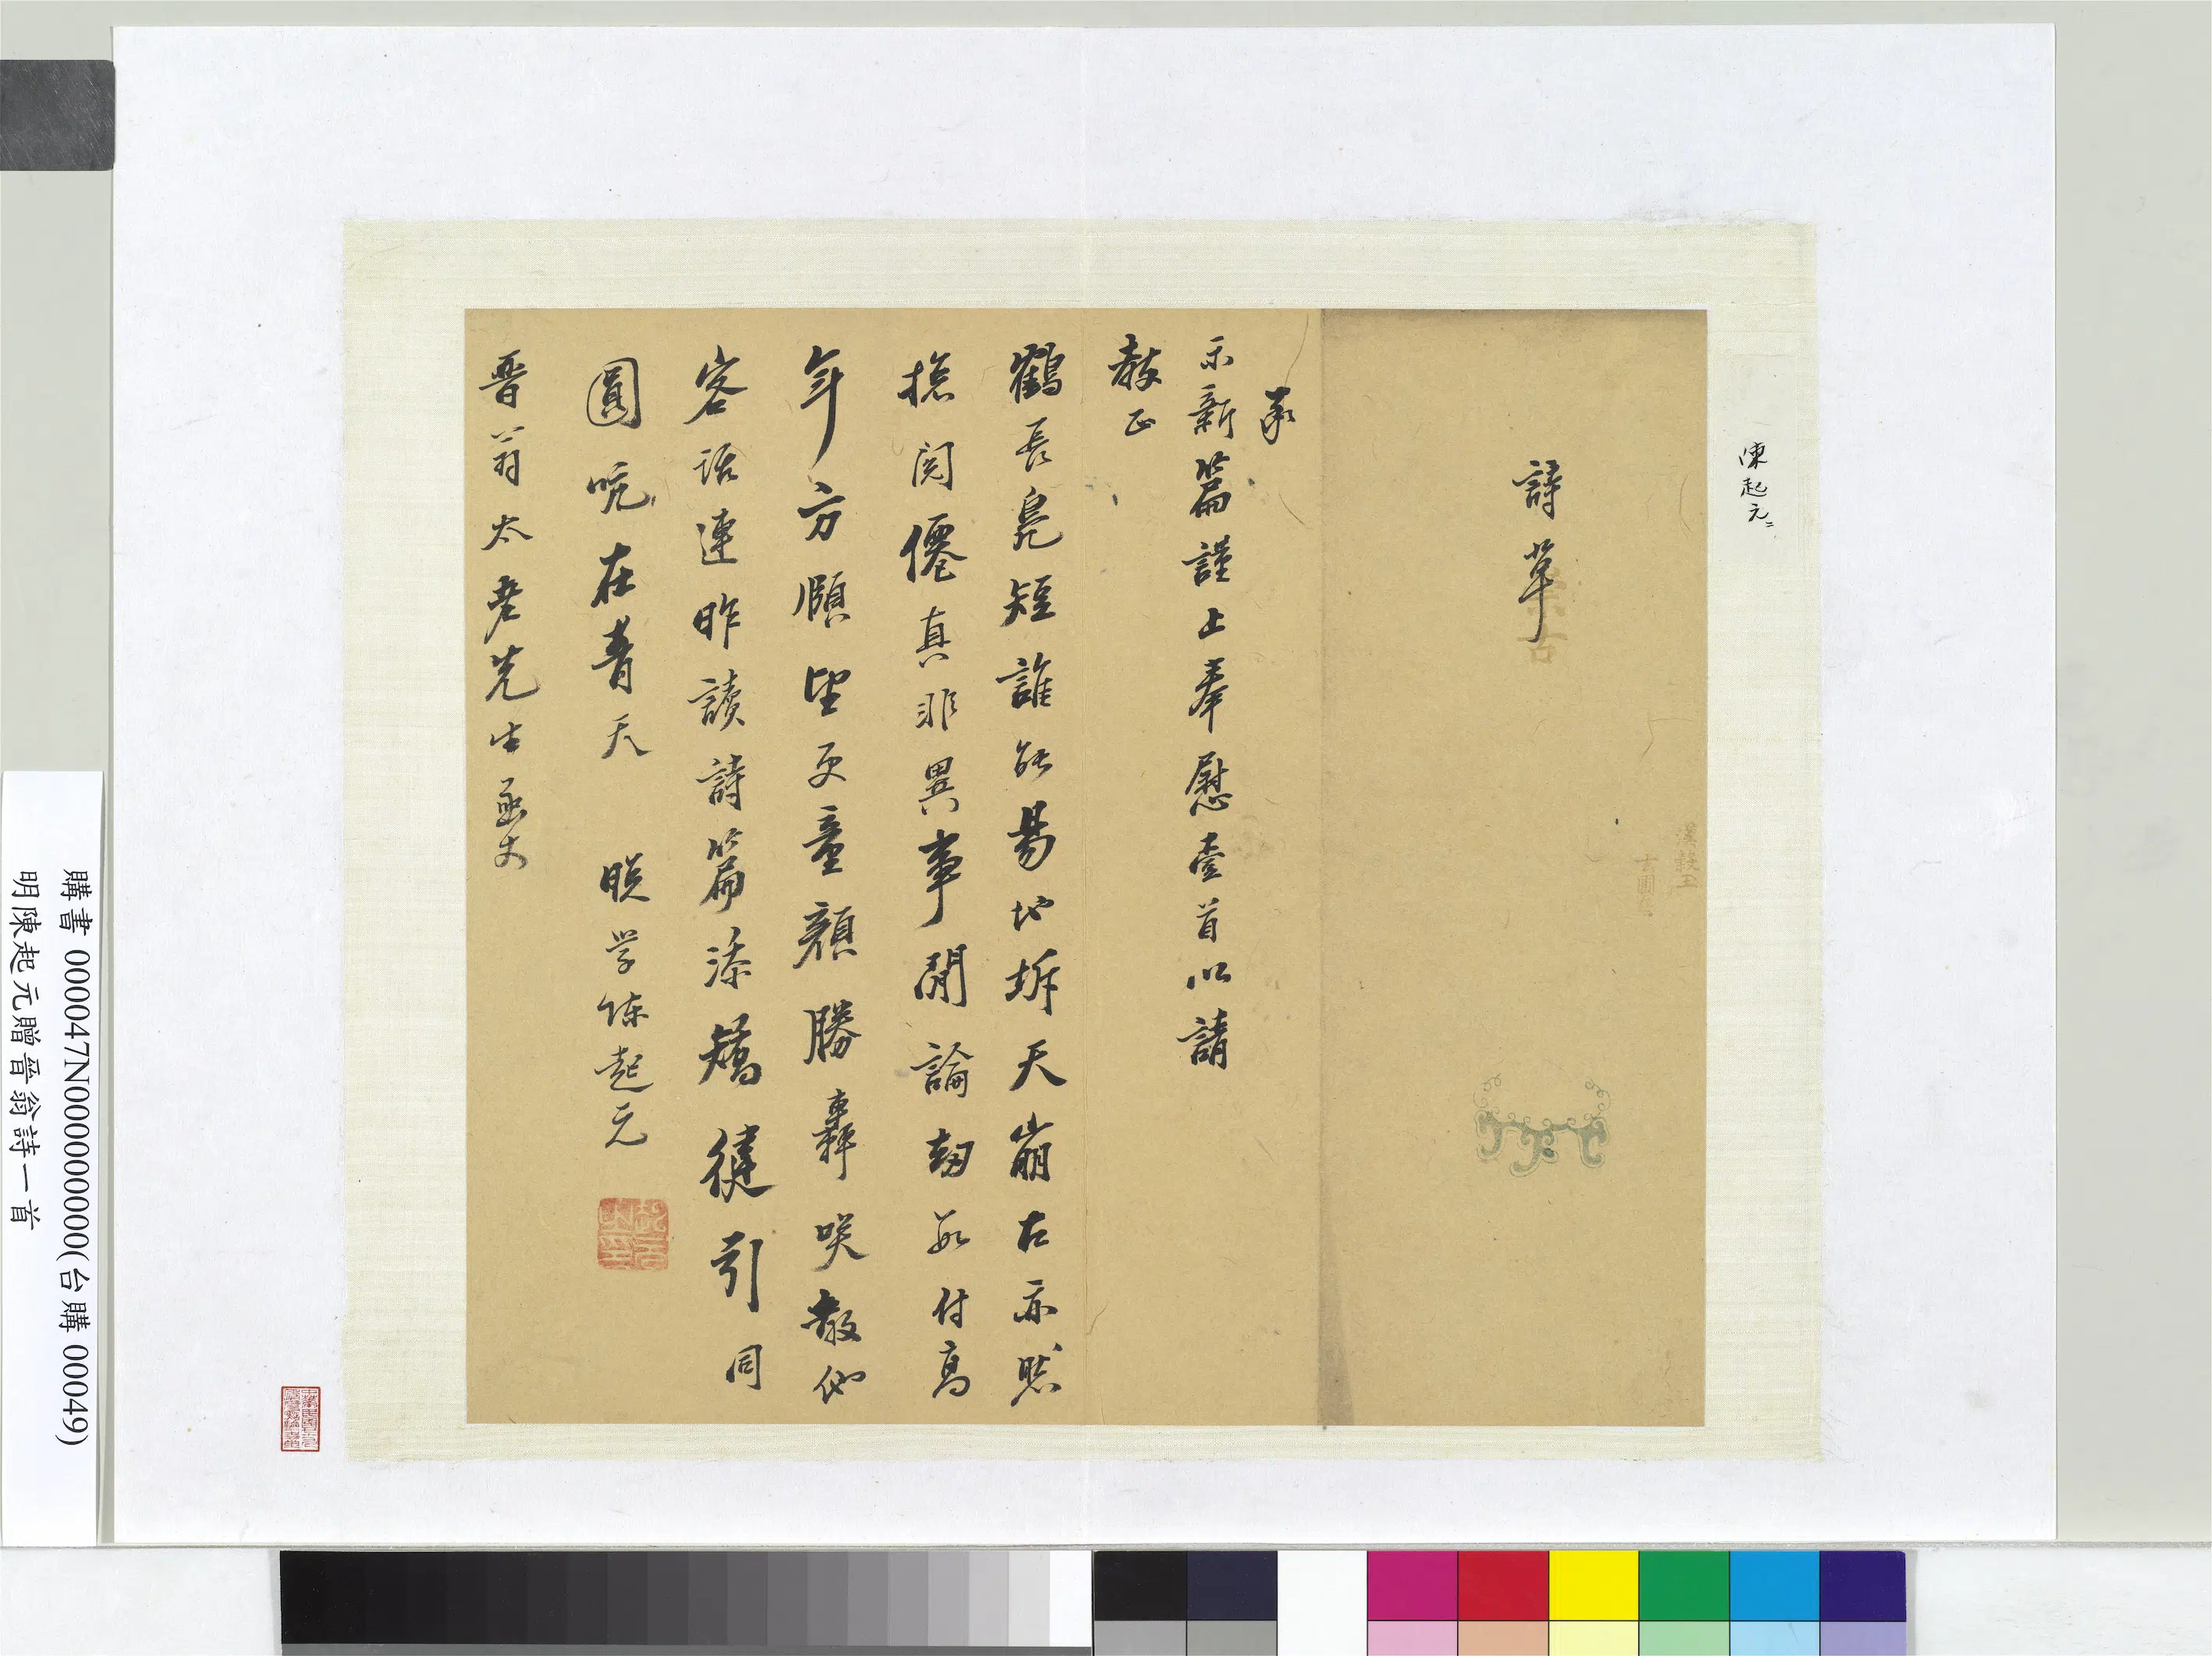 陳起元二
詩草
承
示新篇謹上奉慰壹首以請
教正
鶴長鳧短誰能易地坼天崩古亦然
撫閱僊真非異事閒論劫數付高
年方頤望更童顏勝轟咲教他
客話連昨讀詩篇添矯健引同
圓吭在青天 眷學陳起元
晉翁太老先生函丈
購書 000047N000000000(台購 00049)
明陳起元贈晉翁詩一首